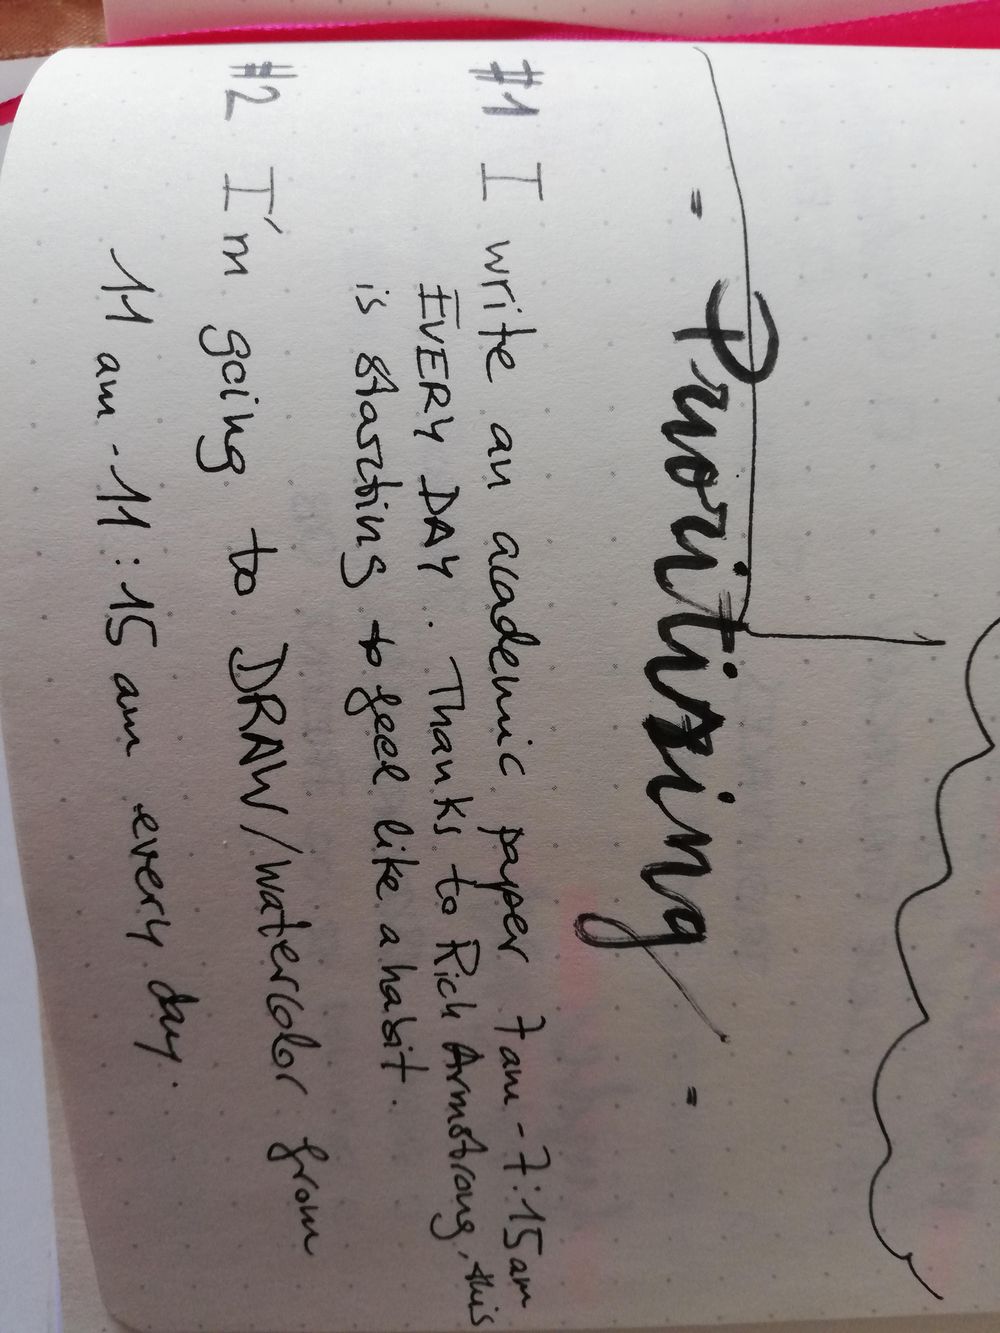 " Prioritising "
#1 I write an academic paper 7 am - 7:15 am
EVERY DAY. Thanks to Rich Armstrong, this
is starting to feel like a habit.
#2 I'm going to DRAW/watercolor from
11 am - 11:15 am every day.